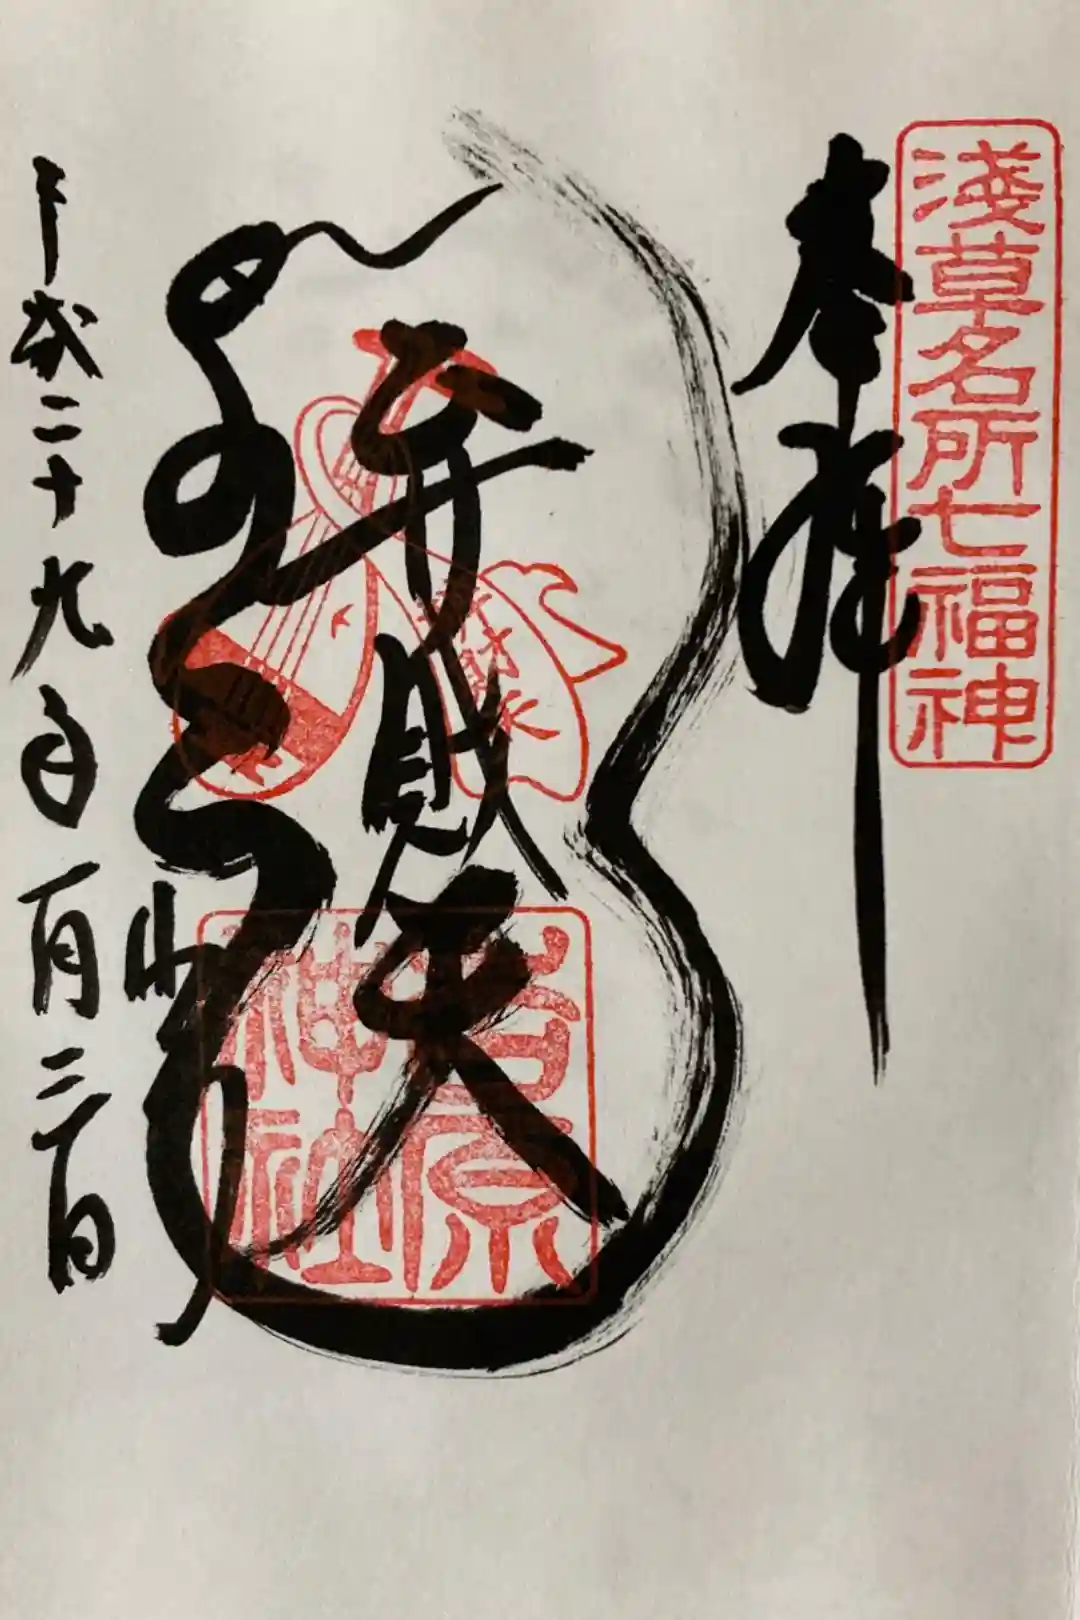 淺草名所七福神
奉拜
弁財天
吉原
神社
平成二十九年一月二日